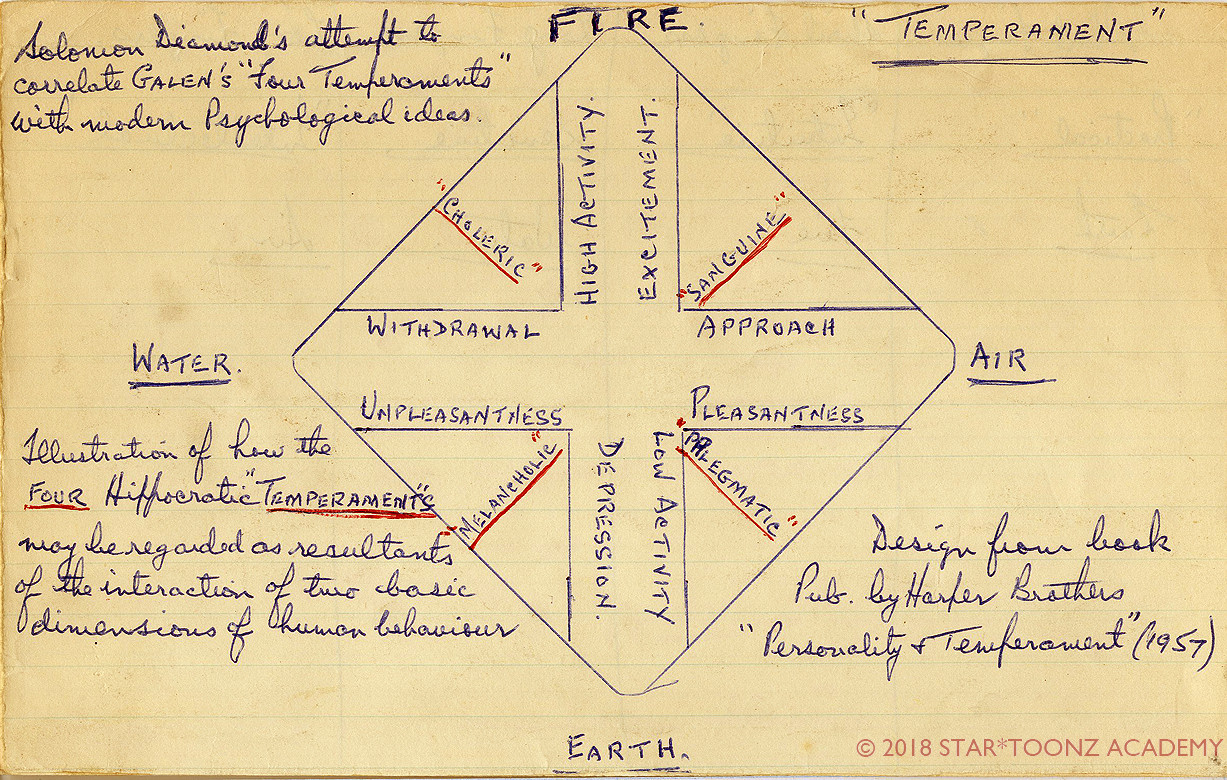 Solomon Diamond's attempt to
correlate GALEN'S "Four Temperaments"
with modern Psychological ideas.
FIRE.
"TEMPERAMENT"
HIGH ACTIVITY.
EXCITEMENT.
"CHOLERIC"
"SANGUINE"
WITHDRAWAL
APPROACH
WATER.
AIR
UNPLEASANTNESS
PLEASANTNESS
"MELANCHOLIC"
DEPRESSION.
LOW ACTIVITY
"PHLEGMATIC"
Illustration of how the
FOUR Hippocratic "TEMPERAMENT"S
may be regarded as resultants
of the interaction of two basic
dimensions of human behaviour
Design from book
Pub. by Harper Brothers
"Personality & Temperament" (1957)
EARTH.
© 2018 STAR*TOONZ ACADEMY